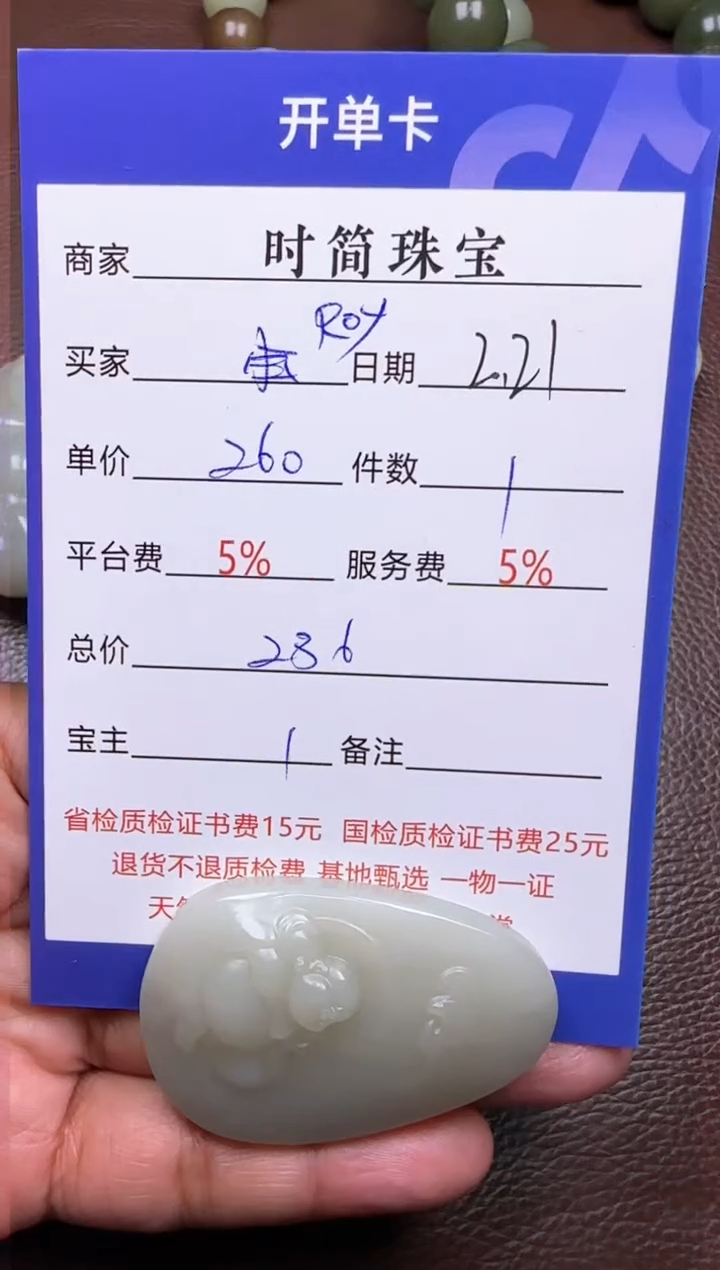 开单卡
商家 时简珠宝
买家 Roy 日期 2.21
单价 260 件数 1
平台费 5% 服务费 5%
总价 286
宝主 1 备注
省检质检证书费15元 国检质检证书费25元
退货不退质检费 基地甄选 一物一证
天